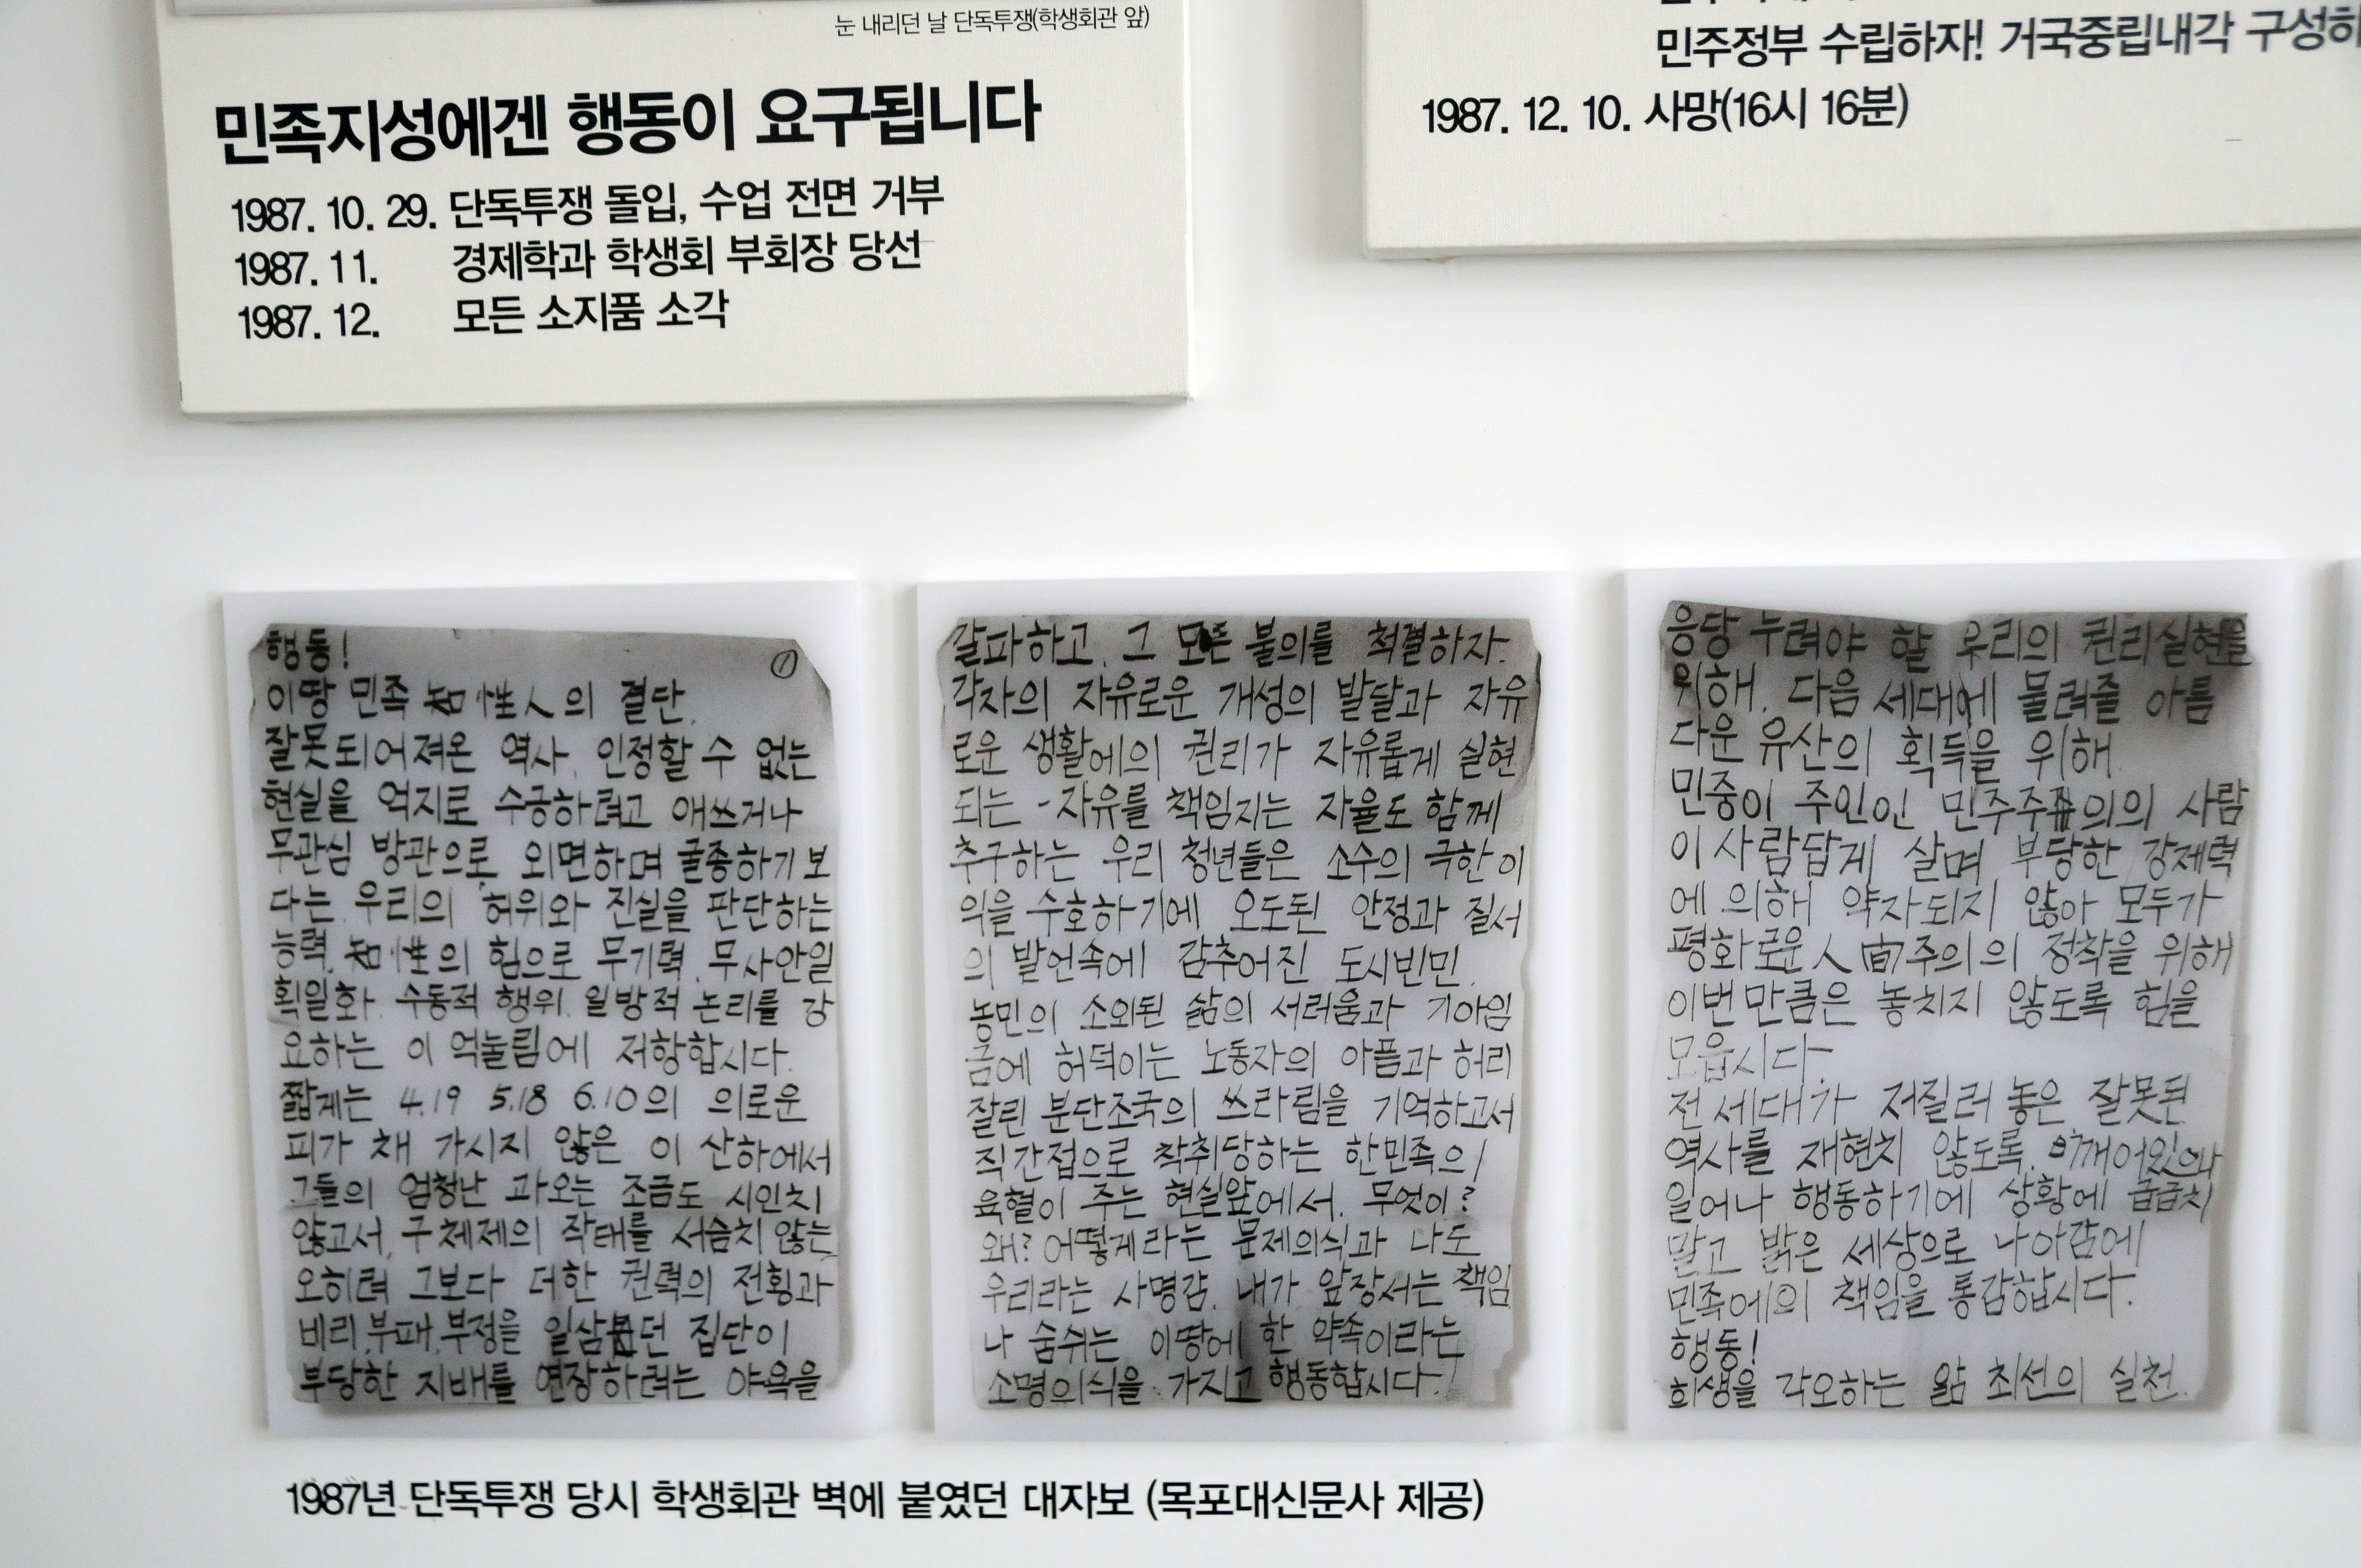 눈 내리던 날 단독투쟁(학생회관 앞)
민족지성에겐 행동이 요구됩니다
1987. 10. 29. 단독투쟁 돌입, 수업 전면 거부
1987. 11. 경제학과 학생회 부회장 당선
1987. 12. 모든 소지품 소각
민주정부 수립하자! 거국중립내각 구성하
1987. 12. 10. 사망(16시 16분)
행동! ①
이땅 민족 知性人의 결단.
잘못되어져온 역사, 인정할 수 없는
현실을 억지로 수긍하려고 애쓰거나
무관심 방관으로, 외면하며 굴종하기 보
다는 우리의 허위와 진실을 판단하는
능력, 知性의 힘으로 무기력, 무사안일
획일화, 수동적 행위, 일방적 논리를 강
요하는 이 억눌림에 저항합시다.
짧게는 4.19 5.18 6.10의 의로운
피가 채 가시지 않은 이 산하에서
그들의 엄청난 과오는 조금도 시인치
않고서, 구체제의 작태를 서슴치 않는
오히려 그보다 더한 권력의 전횡과
비리, 부패, 부정을 일삼던 집단이
부당한 지배를 연장하려는 야욕을
갈파하고, 그 모든 불의를 척결하자.
각자의 자유로운 개성의 발달과 자유
로운 생활에의 권리가 자유롭게 실현
되는 - 자유를 책임지는 자율도 함께
추구하는 우리 청년들은 소수의 극한 이
익을 수호하기에 오도된 안정과 질서
의 발언속에 감추어진 도시빈민,
농민의 소외된 삶의 서러움과 기아임
금에 허덕이는 노동자의 아픔과 허리
잘린 분단조국의 쓰라림을 기억하고서
직간접으로 착취당하는 한민족의
육혈이 주는 현실앞에서, 무엇이?
왜? 어떻게라는 문제의식과 나도
우리라는 사명감, 내가 앞장서는 책임
나 숨쉬는 이땅에 한 약속이라는
소명의식을 가지고 행동합시다.
응당 누려야 할 우리의 권리실현을
위해, 다음 세대에 물려줄 아름
다운 유산의 획득을 위해
민중이 주인인 민주주의의 사람
이 사람답게 살며 부당한 강제력
에 의해 약자되지 않아 모두가
평화로운 人間주의의 정착을 위해
이번만큼은 놓치지 않도록 힘을
모읍시다.
전 세대가 저질러 놓은 잘못된
역사를 재현치 않도록,
일어나 행동하기에 상황에 급급치
말고 밝은 세상으로 나아감에
민족에의 책임을 통감합시다.
행동!
희생을 각오하는 앎 최선의 실천.
1987년 단독투쟁 당시 학생회관 벽에 붙였던 대자보 (목포대신문사 제공)